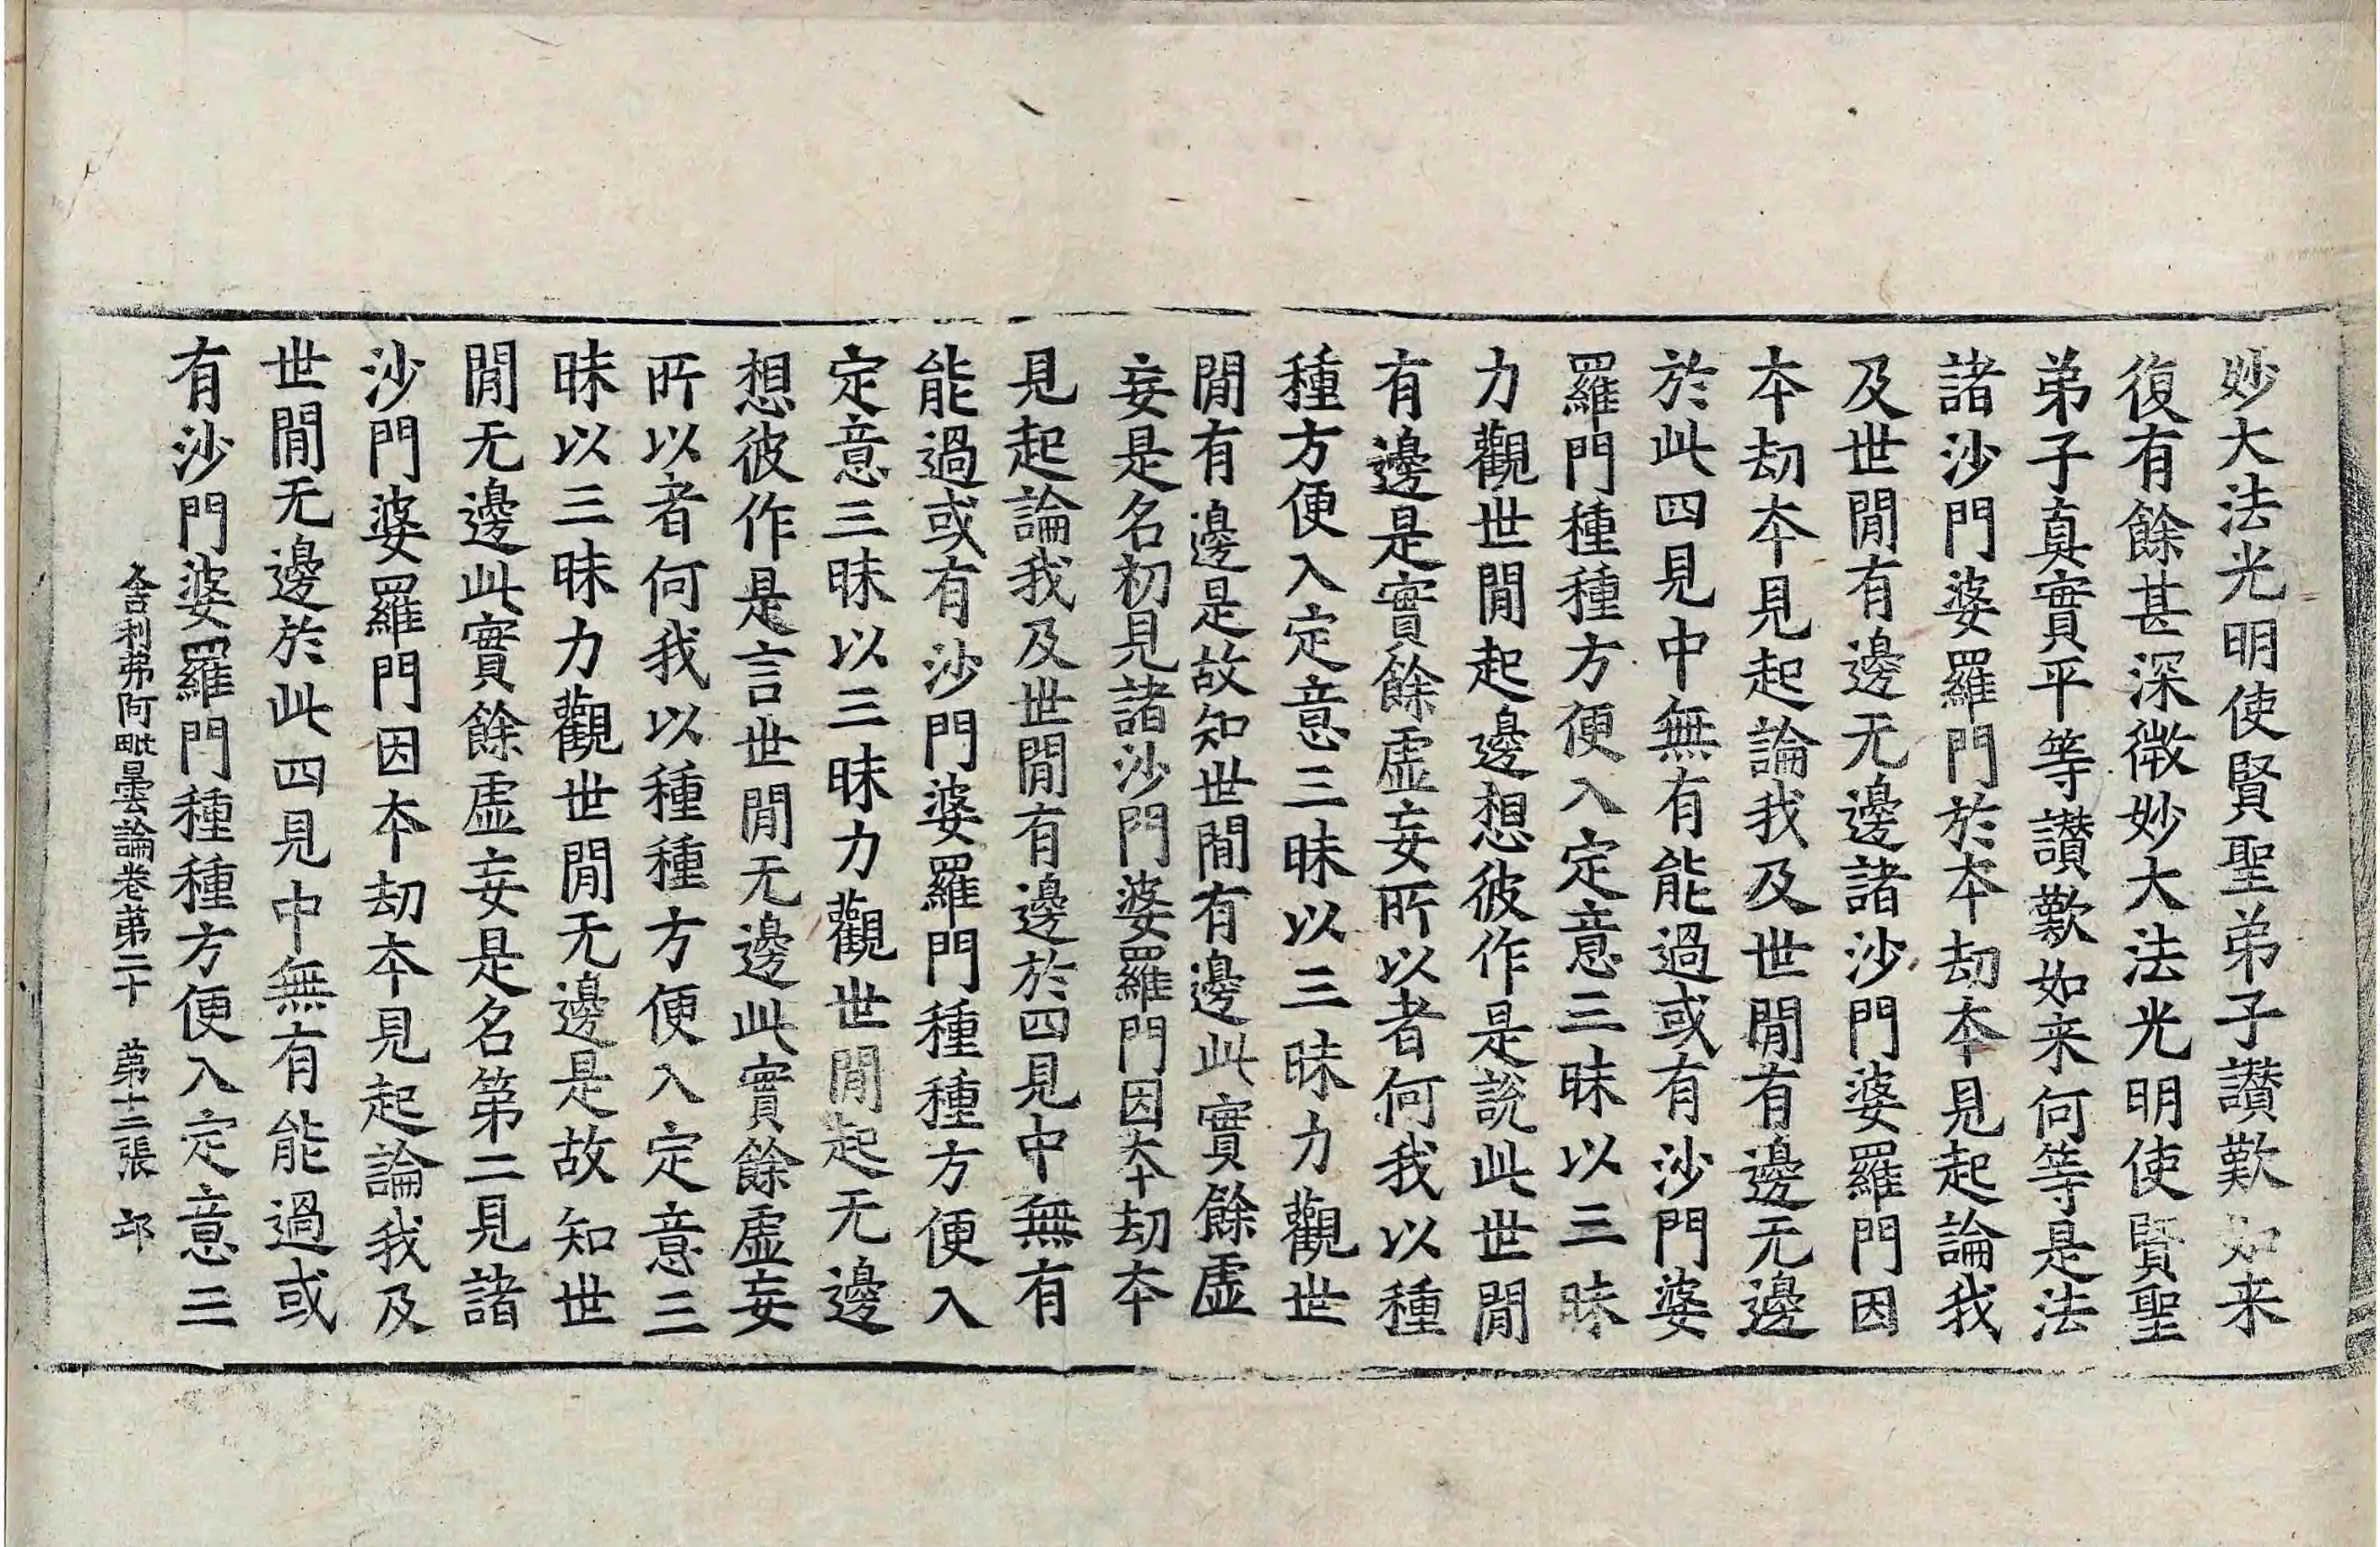 妙大法光明使賢聖弟子讃歎如来
復有餘甚深微妙大法光明使賢聖
弟子真實平等讃歎如来何等是法
諸沙門婆羅門於夲劫夲見起論我
及世閒有邊无邊諸沙門婆羅門因
夲劫夲見起論我及世閒有邊无邊
於此四見中無有能過或有沙門婆
羅門種種方便入定意三昧以三昧
力觀世閒起邊想彼作是說此世閒
有邊是實餘虛妄所以者何我以種
種方便入定意三昧以三昧力觀世
閒有邊是故知世閒有邊此實餘虛
妄是名初見諸沙門婆羅門因夲劫夲
見起論我及世閒有邊於四見中無有
能過或有沙門婆羅門種種方便入
定意三昧以三昧力觀世閒起无邊
想彼作是言世閒无邊此實餘虛妄
所以者何我以種種方便入定意三
昧以三昧力觀世閒无邊是故知世
閒无邊此實餘虛妄是名第二見諸
沙門婆羅門因夲劫夲見起論我及
世閒无邊於此四見中無有能過或
有沙門婆羅門種種方便入定意三
舍利弗阿毗曇論卷第二十 第十三張 邙